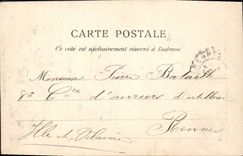 CARTE POSTALE
Ce côté est exclusivement réservé à l'adresse
Monsieur Pierre
8e Cie d'ouvriers d'artillerie
Rennes
Ille et Vilaine